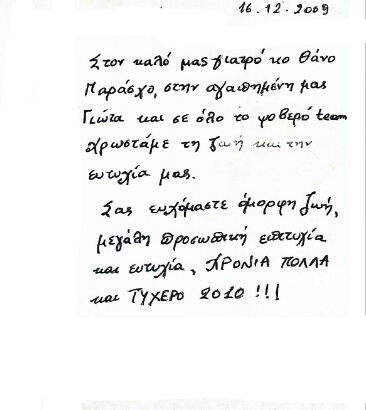 16.12.2009
Στον καλό μας γιατρό κο Θάνο
Παράσχο, στην αγαπημένη μας
Γιώτα και σε όλο το φοβερό team
χρωστάμε τη ζωή και την
ευτυχία μας.
Σας ευχόμαστε όμορφη ζωή,
μεγάλη προσωπική επιτυχία
και ευτυχία, ΧΡΟΝΙΑ ΠΟΛΛΑ
και ΤΥΧΕΡΟ 2010 !!!